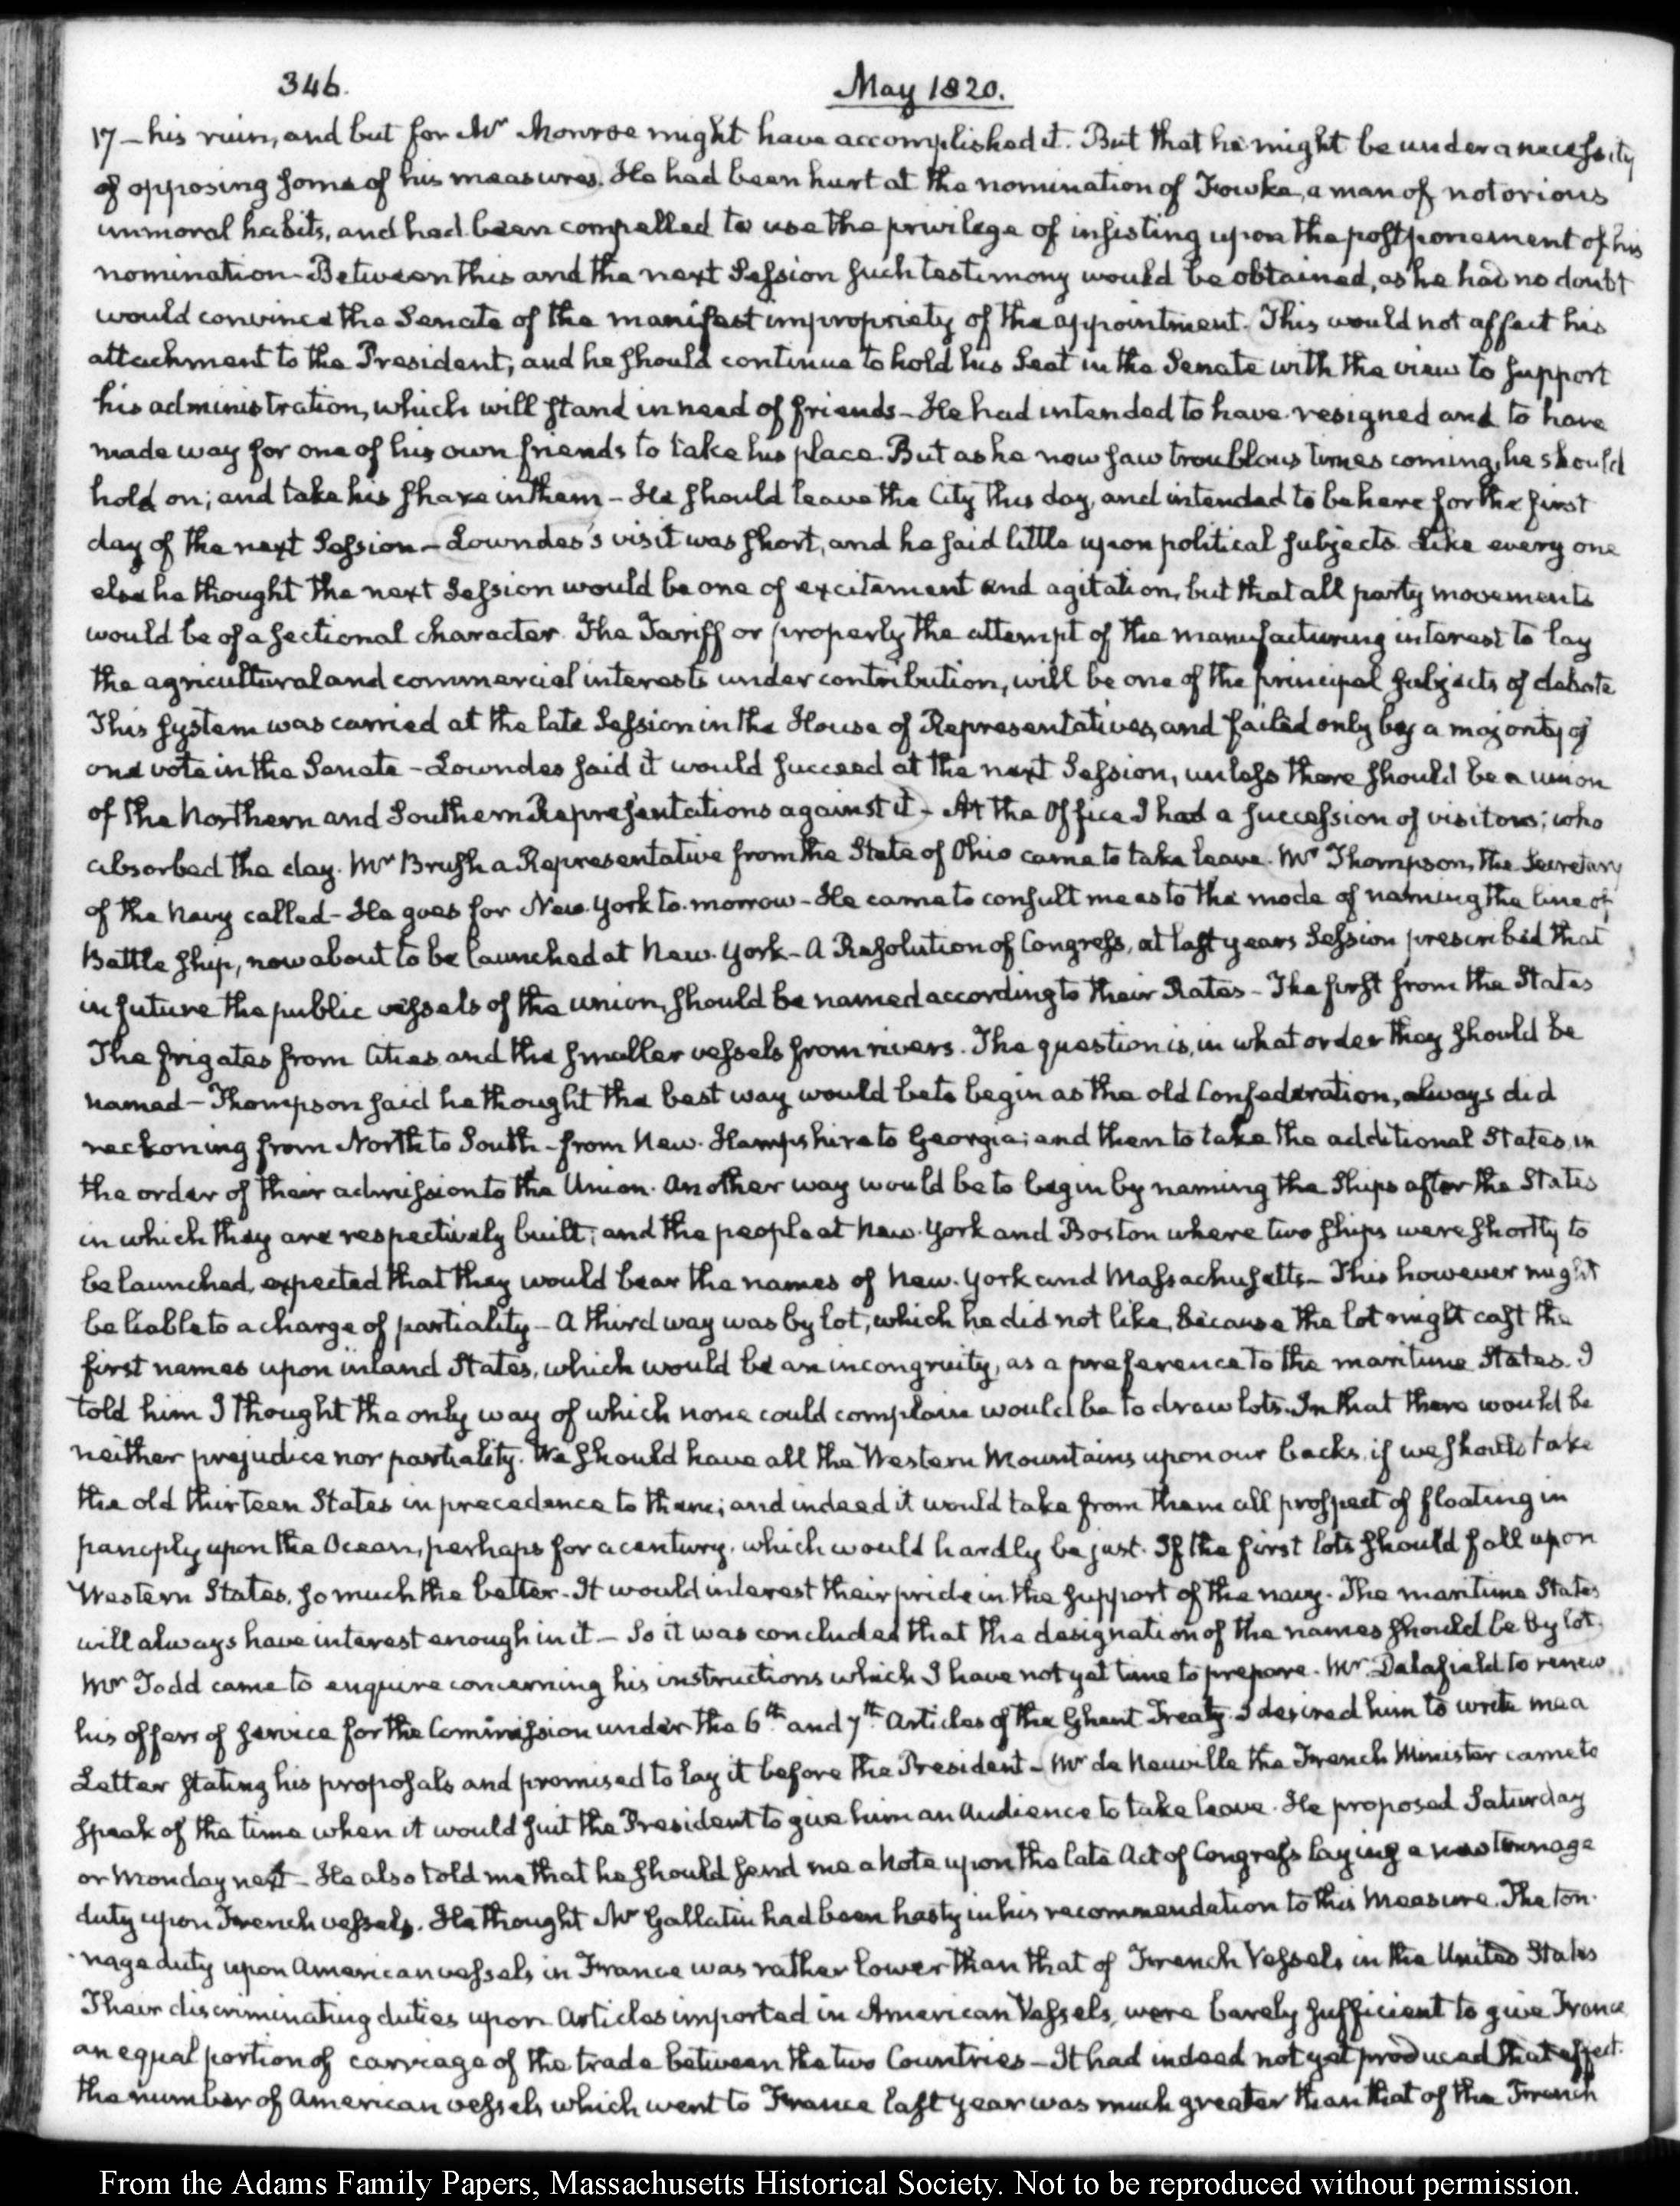 346.
May 1820.
17 - his ruin, and but for Mr Monroe might have accomplished it. But that he might be under a necessity
of opposing some of his measures. He had been hurt at the nomination of Fowke, a man of notorious
immoral habits, and had been compelled to use the privilege of insisting upon the postponement of his
nomination - Between this and the next Session such testimony would be obtained, as he had no doubt
would convince the Senate of the manifest impropriety of the appointment. This would not affect his
attachment to the President, and he should continue to hold his Seat in the Senate with the view to support
his administration, which will stand in need of friends - He had intended to have resigned and to have
made way for one of his own friends to take his place. But as he now saw troublous times coming, he should
hold on; and take his share in them - He should leave the City this day, and intended to be here for the first
day of the next Session - Lowndes's visit was short, and he said little upon political subjects. Like every one
else he thought the next Session would be one of excitement and agitation, but that all party movements
would be of a sectional character. The Tariff or properly the attempt of the manufacturing interest to lay
the agricultural and commercial interests under contribution, will be one of the principal subjects of debate
This system was carried at the late Session in the House of Representatives, and failed only by a majority of
one vote in the Senate - Lowndes said it would succeed at the next Session, unless there should be a union
of the Northern and Southern Representations against it - At the Office I had a succession of visitors; who
absorbed the day. Mr Brush a Representative from the State of Ohio came to take leave. Mr Thompson, the Secretary
of the Navy called - He goes for New-York to-morrow - He came to consult me as to the mode of naming the line of
Battle ship, now about to be launched at New-York - A Resolution of Congress, at last years Session prescribed that
in future the public vessels of the union, should be named according to their Rates - The first from the States
The frigates from Cities and the smaller vessels from rivers. The question is, in what order they should be
named - Thompson said he thought the best way would be to begin as the old Confederation, always did
reckoning from North to South - from New-Hampshire to Georgia; and then to take the additional States, in
the order of their admission to the Union. Another way would be to begin by naming the Ships after the States
in which they are respectively built; and the people at New-York and Boston where two ships were shortly to
be launched, expected that they would bear the names of New-York and Massachusetts - This however might
be liable to a charge of partiality - A third way was by lot, which he did not like, because the lot might cast the
first names upon inland States, which would be an incongruity, as a preference to the maritime States. I
told him I thought the only way of which none could complain would be to draw lots. In that there would be
neither prejudice nor partiality. We should have all the Western Mountains upon our backs, if we should take
the old thirteen States in precedence to them; and indeed it would take from them all prospect of floating in
panoply upon the Ocean, perhaps for a century, which would hardly be just. If the first lots should fall upon
Western States, so much the better - It would interest their pride in the support of the navy. The maritime States
will always have interest enough in it - So it was concluded that the designation of the names should be by lot.
Mr Todd came to enquire concerning his instructions which I have not yet time to prepare. Mr Delafield to renew
his offers of service for the Commission under the 6th and 7th Articles of the Ghent Treaty. I desired him to write me a
Letter stating his proposals and promised to lay it before the President - Mr de Neuville the French Minister came to
speak of the time when it would suit the President to give him an Audience to take leave. He proposed Saturday
or Monday next - He also told me that he should send me a Note upon the late Act of Congress laying a new tonnage
duty upon French vessels. He thought Mr Gallatin had been hasty in his recommendation to this measure. The ton-
-nage duty upon American vessels in France was rather lower than that of French Vessels in the United States
Their discriminating duties upon Articles imported in American Vessels, were barely sufficient to give France
an equal portion of carriage of the trade between the two Countries - It had indeed not yet produced that effect.
the number of American vessels which went to France last year was much greater than that of the French
From the Adams Family Papers, Massachusetts Historical Society. Not to be reproduced without permission.